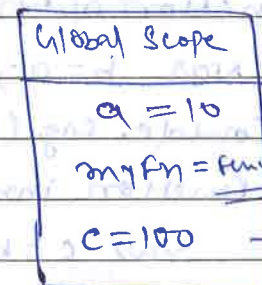 Global Scope
a = 10
myFn =
c = 100